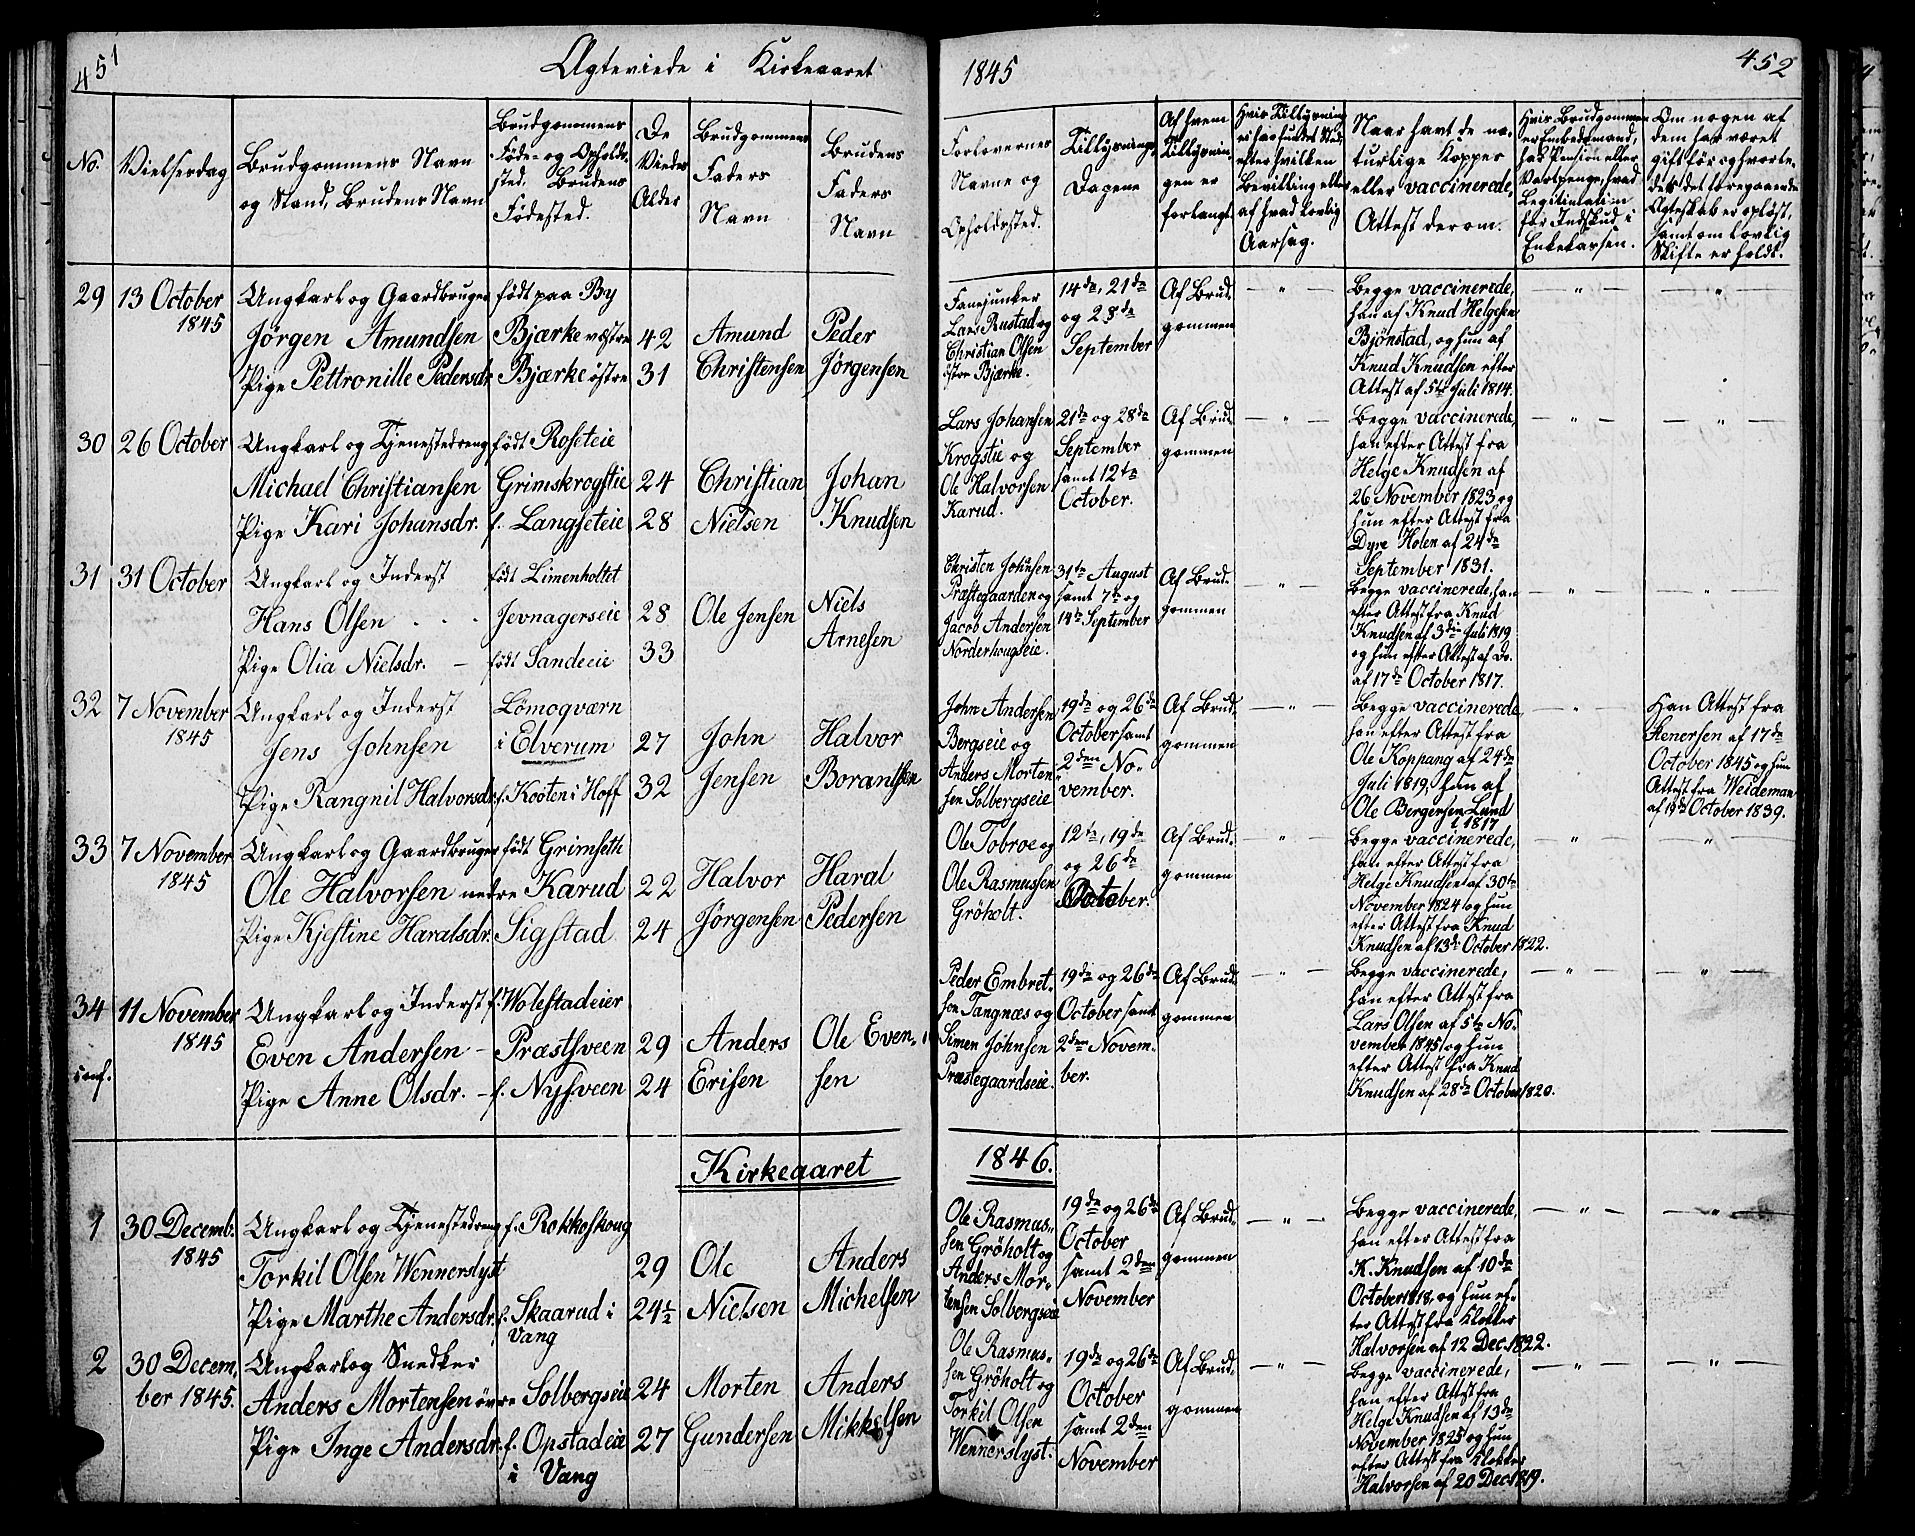 451
Ægteviede i Kirkeaaret
No.
Vielsesdag
Brudgommens Navn
og Stand, Brudens Navn
Brudgommens
Føde- og Opholds-
sted. Brudens
Fødested.
De
Viedes
Alder
Brudgommens
Faders
Navn
Brudens
Faders
Navn
29
13 October
1845
Ungkarl og Gaardbruger
Jørgen Amundsen
Pige Pettronille Pedersdr.
født paa By
Bjærke vestre
Bjærke østre
42
31
Amund
Christensen
Peder
Jørgensen
30
26 October
Ungkarl og Tjenestedreng
Michael Christiansen
Pige Kari Johansdr.
født Roseteie
Grimskrogstie
f. Langseteie
24
28
Christian
Nielsen
Johan
Knudsen
31
31 October
Ungkarl og Inderst
Hans Olsen
Pige Olia Nielsdr.
født Limenholtet
Jevnagerseie
født Sandeeie
28
33
Ole Jensen
Niels
Arnesen
32
7 November
1845
Ungkarl og Inderst
Jens Johnsen
Pige Rangnil Halvorsdr.
Lomoqværn
i Elverum
f. Kooten i Hoff
27
32
John
Jensen
Halvor
33
7 November
1845
Ungkarl og Gaardbruger
Ole Halvorsen nedre
Pige Kjestine Haralsdr.
født Grimseth
Karud
Sigstad
22
24
Halvor
Jørgensen
Haral
Pedersen
34
conf.
11 November
1845
Ungkarl og Inderst
Even Andersen
Pige Anne Olsdr.
f. Wolestadeier
Præstsveen
f. Nysveen
29
24
Anders
Erisen
Ole Even-
sen
Kirkeaaret
1
30 Decemb.
1845
Ungkarl og Tjenestedreng
Torkil Olsen Wennerslyst
Pige Marthe Andersdr.
f. Rokkoskoug
f. Skaarud i
Vang
29
24½
Ole
Nielsen
Anders
Michelsen
2
30 Decem-
ber 1845.
Ungkarl og Snedker
Anders Mortensen øvre
Pige Inge Andersdr.
Solbergseie
f. Opstadeie
i Vang
24
27
Morten
Gundersen
Anders
Mikkelsen
1845
452
Forlovernes
Navne og
Opholdssted.
Tillysnings-
Dagene
Af hvem
Tillysnin-
gen er
forlangt
Hvis Tillysning
ei har fundet Sted,
efter hvilken
Bevilling eller
af hvad lovlig
Aarsag.
Naar havt de na-
turlige Kopper
eller vaccinerede,
Attest derom.
Hvis Brudgommen
er Embedsmand,
har Pension eller
Vartpenge, hvad
Legitimation
for Indskud i
Enkekassen.
Om nogen af
dem har været
gift før og hvorle-
des det foregaaende
Ægteskab er opløst,
samt om lovlig
Skifte er holdt.
Fanejunker
Lars Rustad og
Christian Olsen
østre Bjærke.
14de, 21de
og 28de
September
Af Brud-
gommen
Begge vaccinerede,
han af Knud Helgesen
Bjørnstad, og hun af
Knud Knudsen efter
Attest af 5te Juli 1814.
Lars Johansen
Krogstie og
Ole Halvorsen
Karud.
21de og 28de
September
samt 12te
October.
Af Brud-
gommen
Begge vaccinerede,
han efter Attest fra
Helge Knudsen af
26 November 1823, og
hun efter Attest fra
Dyre Holen af 24de
September 1831.
Christen Johnsen
Præstegaarden og
Jacob Andersen
Norderhougseie.
31te August
samt 7de og
14de September
Af Brud-
gommen
Begge vaccinerede, han
efter Attest fra Knud
Knudsen af 3die Juli 1819
og hun efter Attest af Do.
af 17de October 1817.
John Andersen
Bergseie og
Anders Morten-
sen Solbergseie
19de og 26de
October samt
2den No-
vember.
Af Brud-
gommen
Begge vaccinerede,
han efter Attest fra
Ole Koppang af 24de
Juli 1819, hun af
Ole Bergersen Lund
i 1817
Han Attest fra
Stenersen af 17de
October 1845 og hun
Attest fra Weideman
af 19de October 1839.
Ole Tobroe og
Ole Rasmussen
Grøholt.
12te, 19de
og 26de
October.
Af Brud-
gommen
Begge vaccinerede,
han efter Attest fra
Helge Knudsen af 30te
November 1824 og hun
efter Attest fra Knud
Knudsen af 13de October 1822.
Peder Embret-
sen Tangnæs og
Simen Johnsen
Præstegaardseie.
19de og 26de
October samt
2den Novem-
ber.
Af Brud-
gommen
Begge vaccinerede,
han efter Attest fra
Lars Olsen af 5te No-
vember 1845 og hun
efter Attest fra Knud
Knudsen af 28de October 1820.
1846.
Ole Rasmus-
sen Grøholt og
Anders Mor-
tensen Solbergseie
19de og 26de
October
samt 2den
November
Af Brud-
gommen
Begge vaccinerede,
han efter Attest fra
K. Knudsen af 10de
October 1818, og hun ef-
ter Attest fra Klokker
Halvorsen af 12 Dec. 1822.
Ole Rasmus-
sen Grøholt og
Torkil Olsen
Wennerslyst.
19de og 26de
October
samt 2den
November
Af Brud-
gommen
Begge vaccinerede,
han efter Attest fra
Helge Knudsen af 13de
November 1825 og hun
efter Attest fra Klokker
Halvorsen af 20 Dec. 1819.